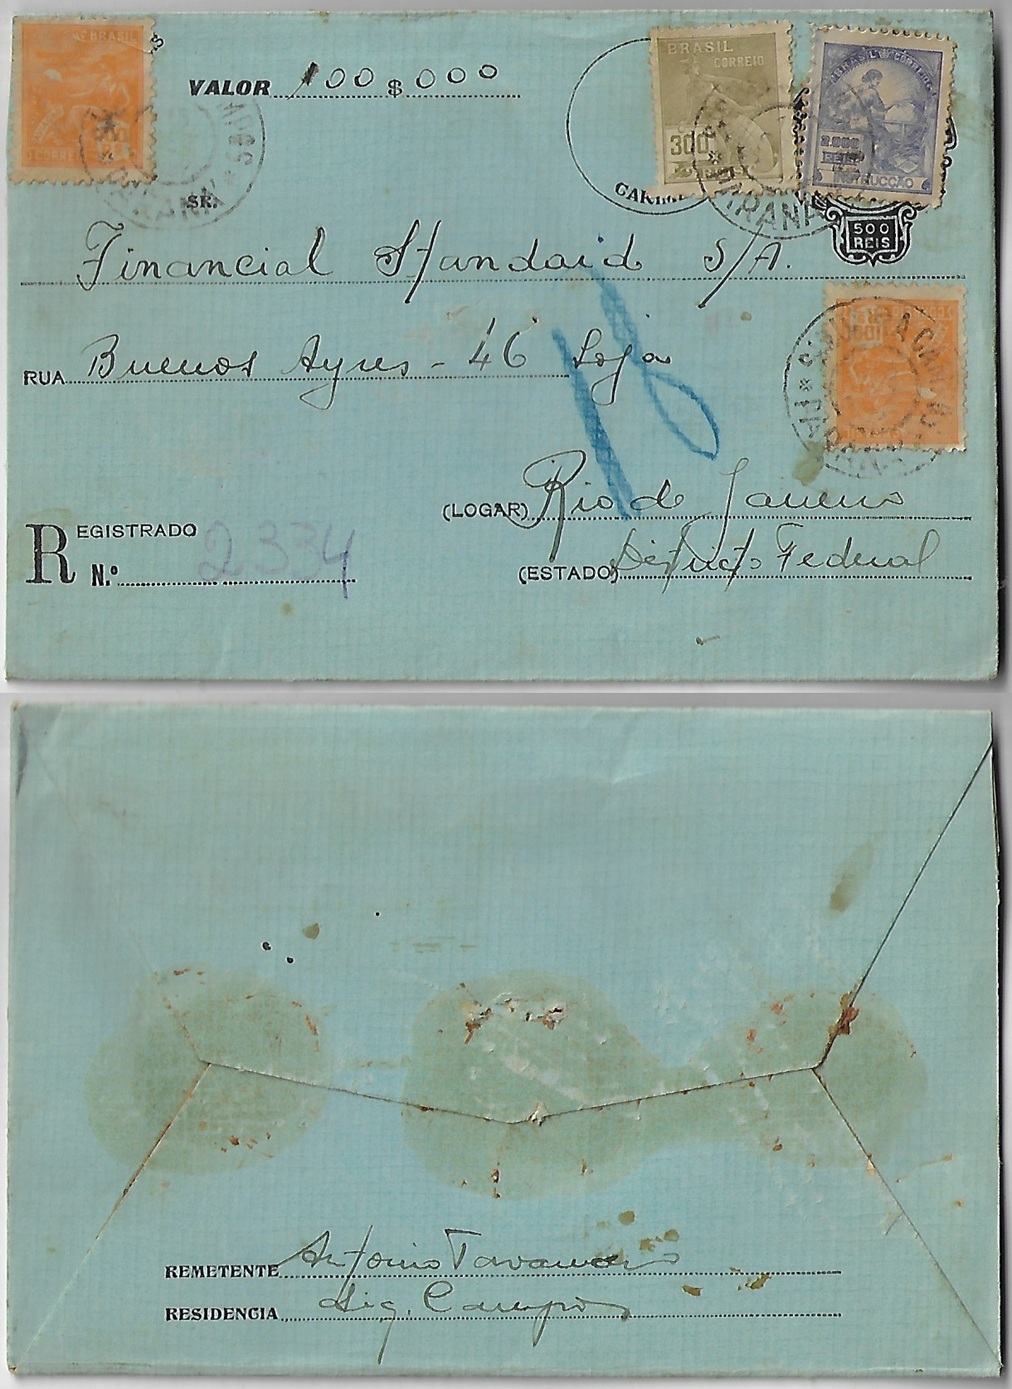 BRASIL
VALOR 100$000
BRASIL CORREIO
300
BRASIL CORREIO
2.000
REIS
INSTRUCÇÃO
CARIM
PARANÁ
PARANÁ
SR.
500
REIS
Financial Standard S/A.
RUA Buenos Ayres - 46 Loja
100
PARANÁ
18
(LOGAR) Rio de Janeiro
REGISTRADO
N.º 2334
(ESTADO) Districto Federal
REMETENTE Antonio
RESIDENCIA Siq. Campos